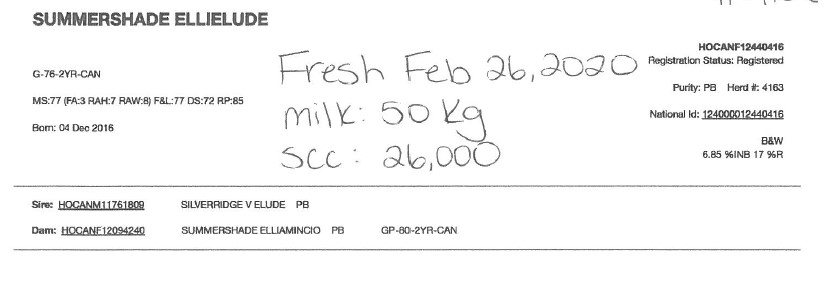 SUMMERSHADE ELLIELUDE
HOCANF12440416
Registration Status: Registered
G-76-2YR-CAN
Fresh Feb 26, 2020
Purity: PB Herd #: 4163
MS:77 (FA:3 RAH:7 RAW:8) F&L:77 DS:72 RP:85
milk: 50 Kg
National Id: 124000012440416
Born: 04 Dec 2016
B&W
scc: 26,000
6.85 %INB 17 %R
Sire: HOCANM11761809 SILVERRIDGE V ELUDE PB
Dam: HOCANF12094240 SUMMERSHADE ELLIAMINCIO PB GP-80-2YR-CAN